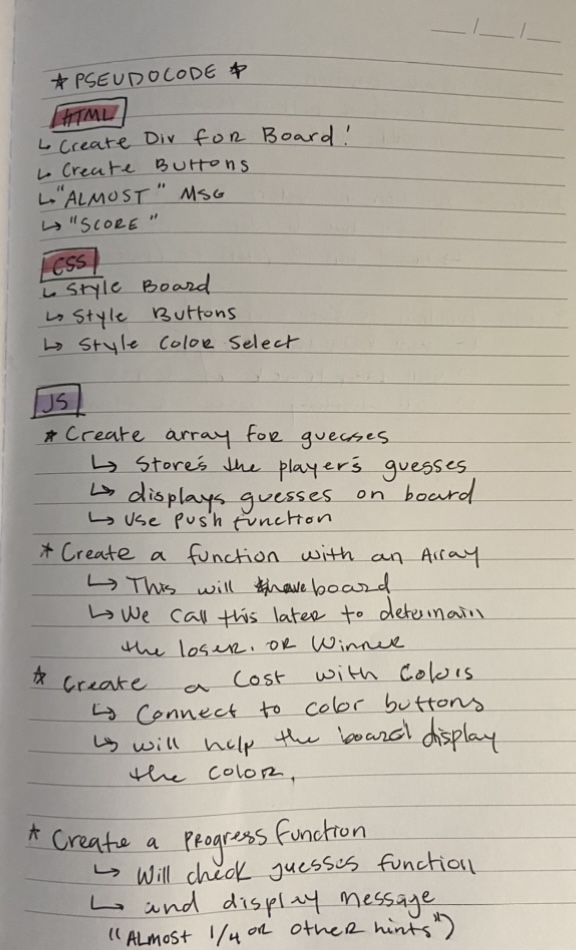 __/__/__
* PSEUDOCODE *
HTML
↳ Create Div for Board!
↳ Create Buttons
↳ "ALMOST" MSG
↳ "SCORE"
CSS
↳ Style Board
↳ Style Buttons
↳ Style Color Select
JS
* Create array for guesses
↳ Store's the player's guesses
↳ displays guesses on board
↳ Use Push function
* Create a function with an Array
↳ This will have board
↳ We call this later to determain
the loser. OR Winner
* Create a Cost with Colors
↳ Connect to color buttons
↳ will help the board display
the color.
* Create a Progress function
↳ Will check guesses function
↳ and display message
"ALMOST 1/4 OR other hints")